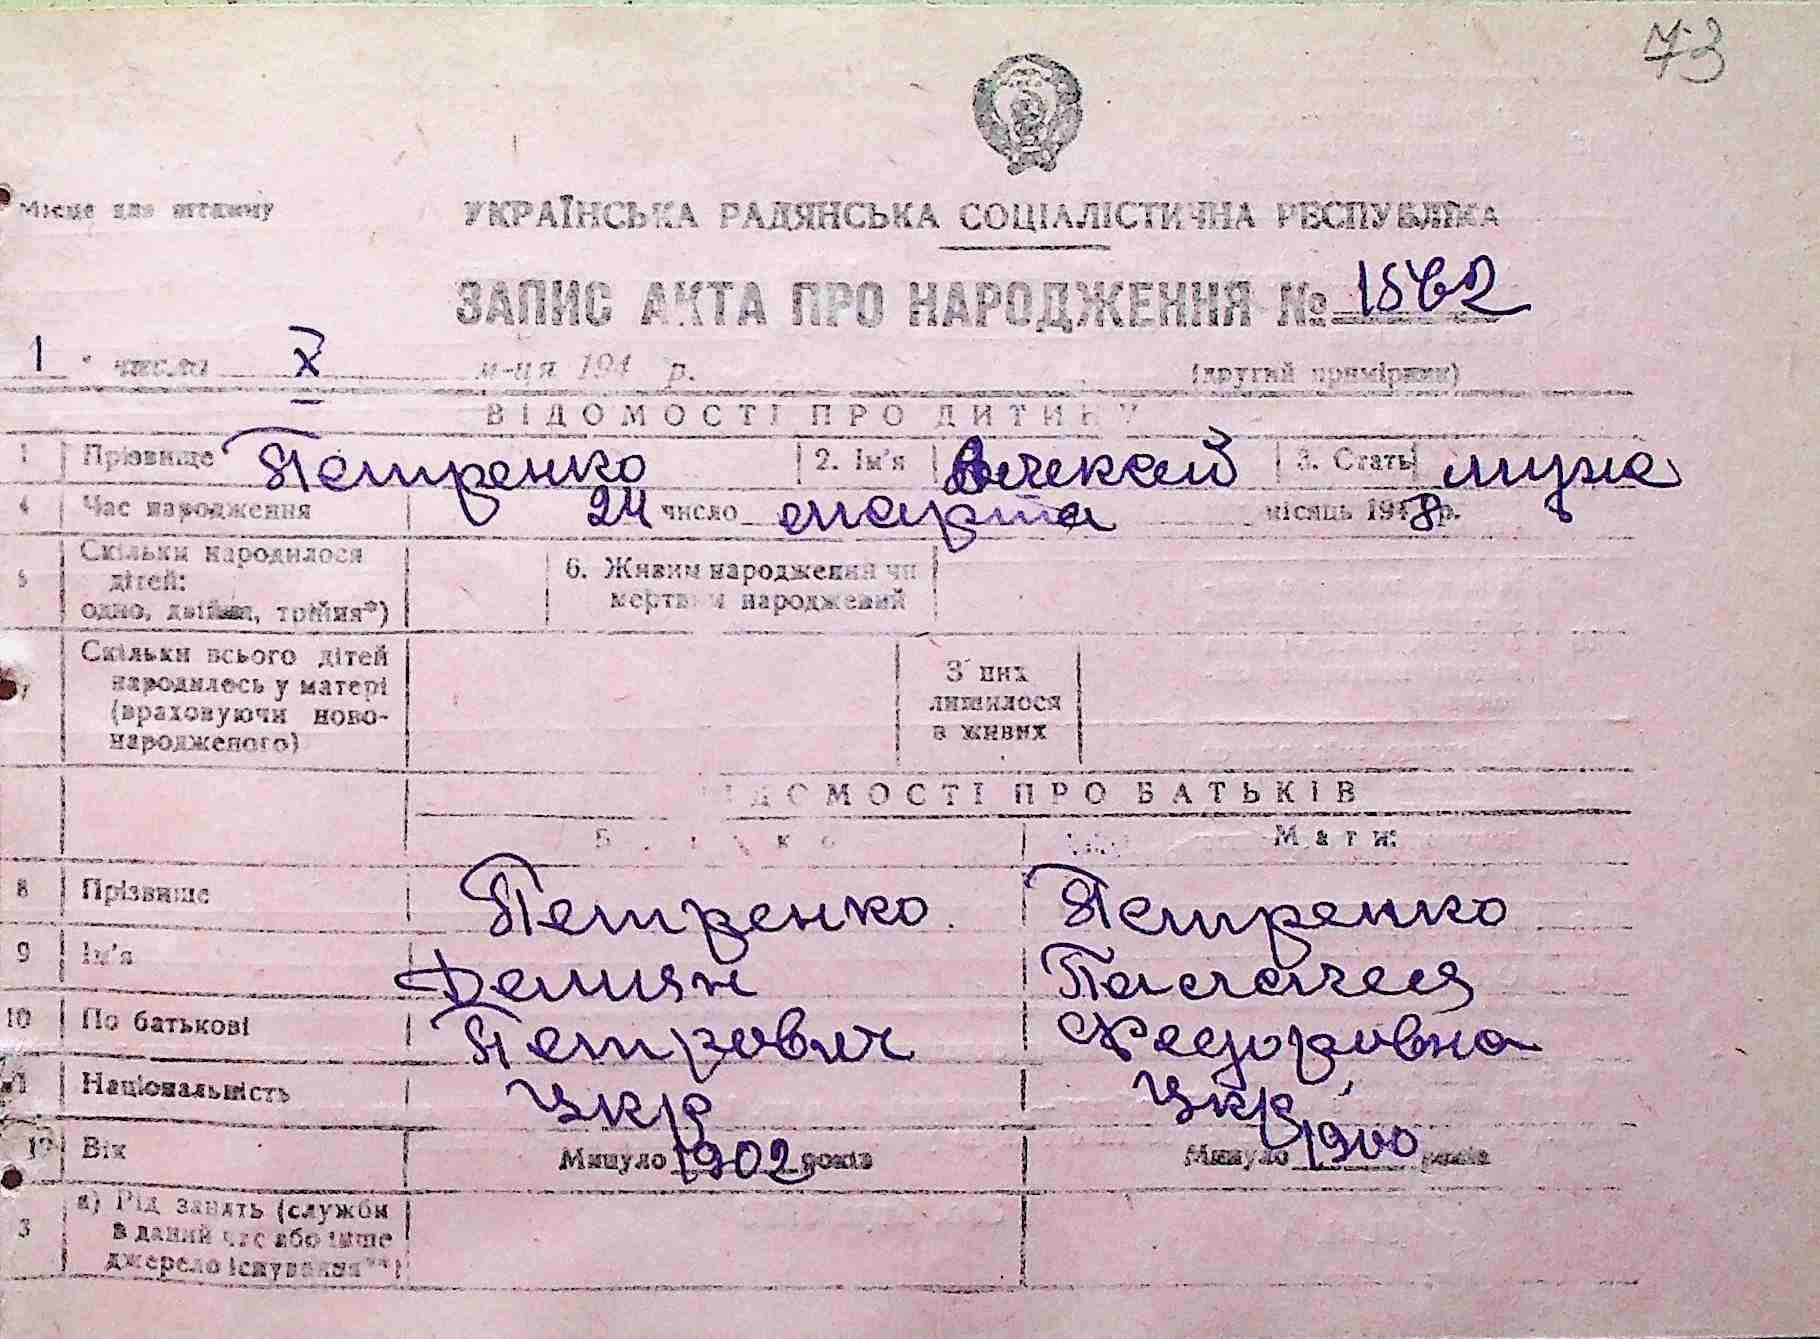 73
Місце для штампу
УКРАЇНСЬКА РАДЯНСЬКА СОЦІАЛІСТИЧНА РЕСПУБЛІКА
ЗАПИС АКТА ПРО НАРОДЖЕННЯ №
1 числа X м-ця 194 р. (другий примірник)
ВІДОМОСТІ ПРО ДИТИНУ
1 Прізвище Петренко 2. Ім'я Алексей 3. Стать муж
4 Час народження 24 число марта місяць 1948 р.
5 Скільки народилося
дітей:
одно, двійня, трійня*)
6. Живим народжений чи
мертвим народжений
7 Скільки всього дітей
народилось у матері
(враховуючи ново-
народженого)
З них
лишилося
в живих
ВІДОМОСТІ ПРО БАТЬКІВ
Батько Мати:
8 Прізвище Петренко Петренко
9 Ім'я Демиян Палагея
10 По батькові Петрович Федоровна
11 Національність Укр Укр
12 Вік Минуло 1902 років Минуло 1900 років
3 а) Рід занять (служби
в даний час або інше
джерело існування**)